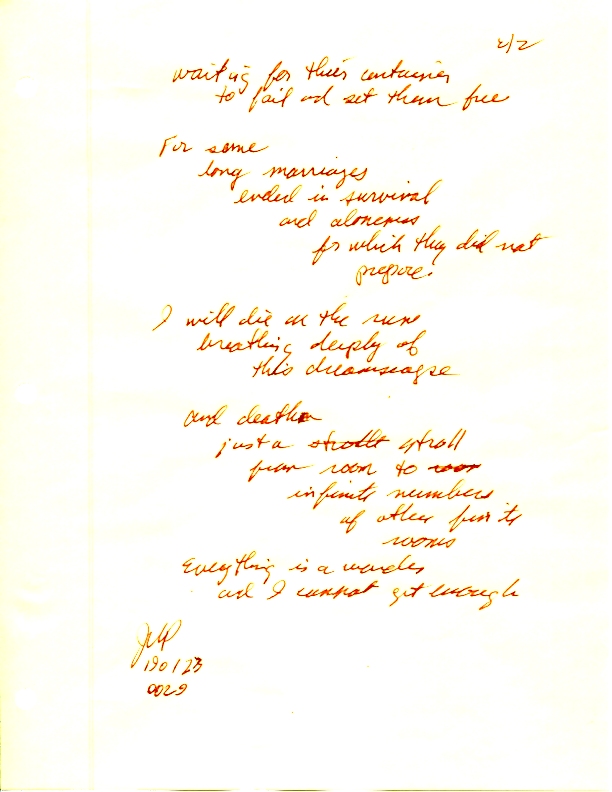 2/2
waiting for their container
to fail and set them free
For some
long marriages
ended in survival
and aloneness
for which they did not
prepare.
I will die on the run
breathing deeply of
this dreamscape
and death
just a strollt stroll
from room to room
infinite numbers
of other finite
rooms
Everything is a wonder
and I cannot get enough
190123
0029